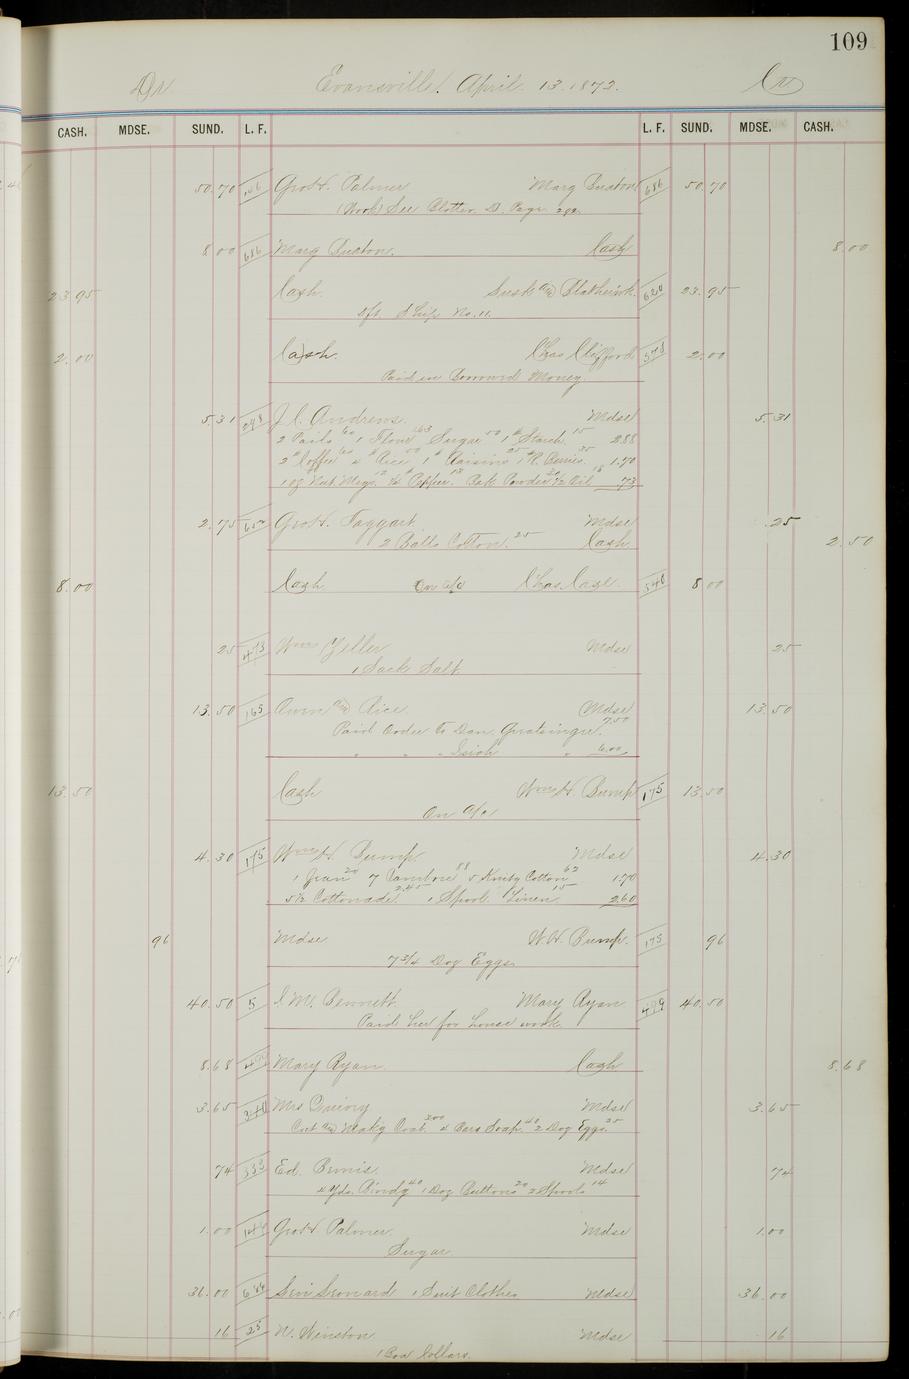 109
Dr Evansville, April 13. 1872. Cr
CASH. MDSE. SUND. L. F. L. F. SUND. MDSE. CASH.
50.70 Palmer Marg Buxton 686 50.70
(Work) See Blotter D. Page
8 00 686 Marg Buxton. Cash 8.00
23.95 Cash 620 23.95
Sft. Ship No. 11.
2.00 Cash Chas Clifford 2.00
Paid in Borrowed Money.
5.31 J. C. Andrews. Mdse 5.31
2 Pails 1 Flour Sugar 1 Starch 15 2.88
2 Coffee Rice 1 Raisins 25 1.70
Pepper Bak Powder 1/2 Oil 18 .73
2.75 Taggart Mdse .25
2 Balls Cotton. 25 Cash 2.50
8.00 Cash On a/c Chas. Case. 540 8 00
25 473 Wm Yeller Mdse 25
1 Sack Salt.
13.50 165 Rice Mdse 13.50
Paid Order to Dan. 7.50
" " " " 6.00
13.50 Cash Wm H. Bump 175 13.50
On a/c
4.30 175 Wm H. Bump Mdse 4.30
1 Jean 20 7 88 5 Cotton 62 1.70
5 1/2 Cottonade 2.45 1 Spool Linen 15 2.60
96 Mdse W. H. Bump. 175 96
7 3/4 Doz Eggs
40.50 5 Bennett Mary Ryan 499 40.50
Paid her for house work.
8.68 Mary Ryan Cash 8.68
3.65 Mrs Mdse 3.65
Cut & Making Coat 300 4 Bars Soap 40 2 Doz Eggs. 25
74 333 Ed. Bemis. Mdse 74
4 Yds. Bindg 40 1 Doz Buttons 20 2 Spools 14
1.00 146 Palmer Mdse 1.00
Sugar
36.00 Leonard 1 Suit Clothes Mdse 36.00
16 25 N. Winston Mdse 16
1 Box Collars.